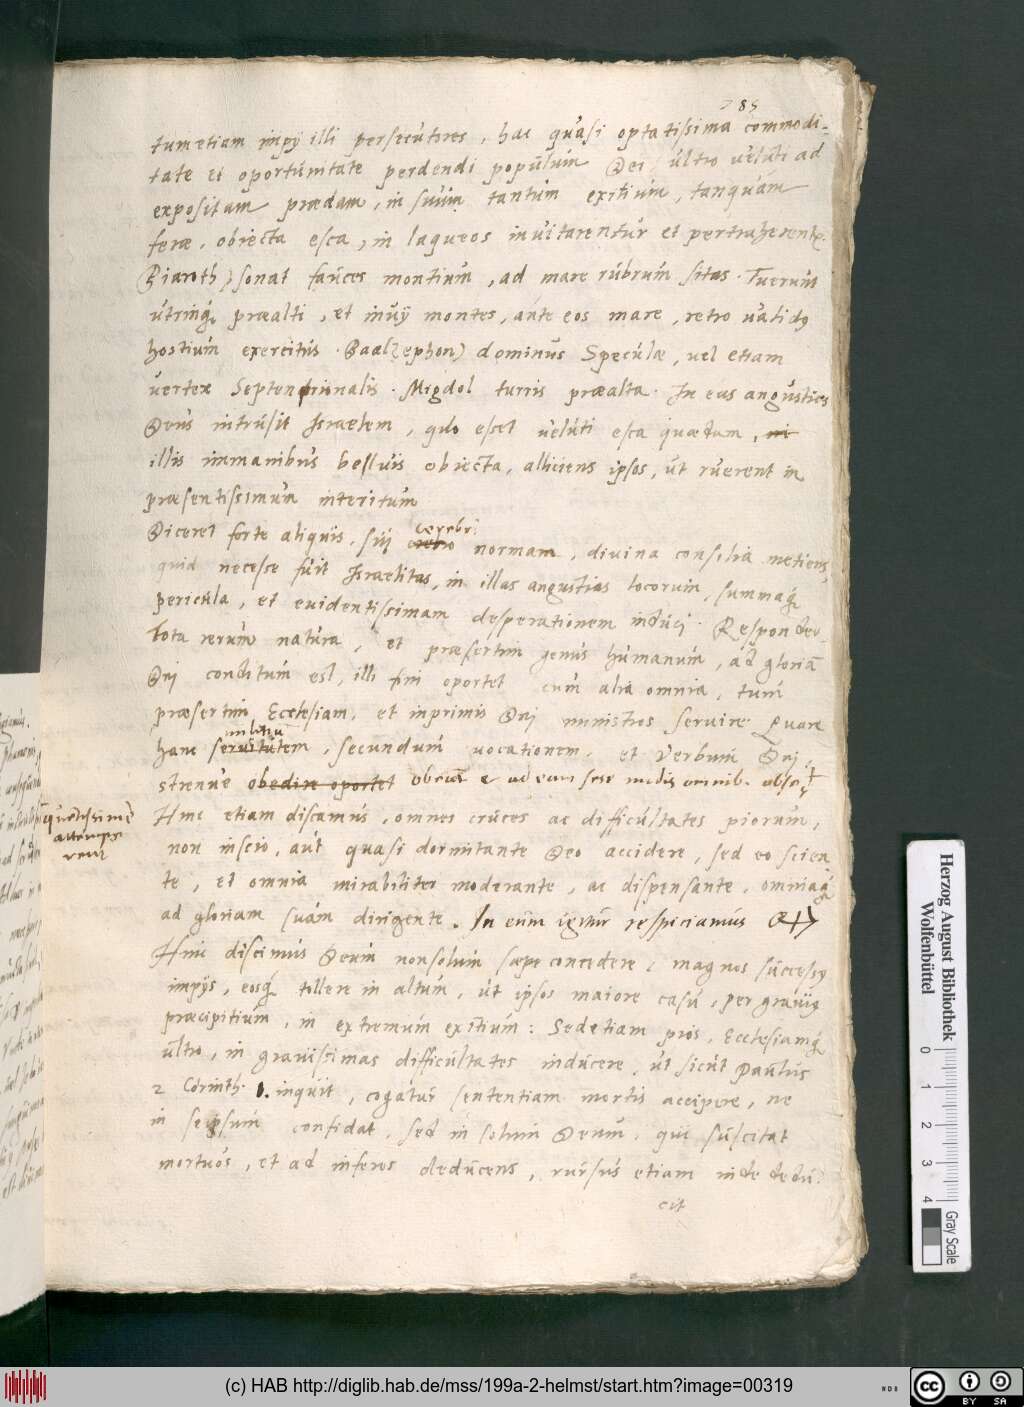 785
tum etiam impij illi persecutores, hac quasi optatissima commodi-
tate et oportunitate perdendi populum Dei ultro veluti ad
expositam praedam, in suum tantum exitium, tanquam
ferae, obiecta esca, in laqueos invitarentur et pertraherent
sonat fauces montium, ad mare rubrum sitas. Fuerunt
utrinq praealti, et inuij montes, ante eos mare, retro validg
hostium exercitus. Baalzephon) dominus Speculae, vel etiam
vertex Septentrionalis. Migdol turris praealta. In eas angustias
Deus intrusit Israelem, quo esset veluti esca quaedam,
illis immanibus belluis obiecta, alliciens ipsos, ut ruerent in
praesentissimum interitum
Diceret forte aliquis, sui cerebri normam, divina consilia metiens,
quid necesse fuit Israelitas, in illas angustias locorum, summaq
pericula, et evidentissimam desperationem induci. Respondeo
Tota rerum natura, et praesertim genus humanum, ad gloriam
Dei conditum est, illi fini oportet cum alia omnia, tum
praesertim Ecclesiam, et inprimis Dei ministros servire. Quare
militiam
hanc servitutem, secundum vocationem, et Verbum Dei,
strenue obedire oportet
Hinc etiam discamus, omnes cruces ac difficultates piorum,
non inscio, aut quasi dormitante Deo accidere, sed eo scien
te, et omnia mirabiliter moderante, ac dispensante, omniaq
ad gloriam suam dirigente. In eum igitur respiciamus
Hinc discimus Deum non solum saepe concedere magnos successg
impijs, eosq tollere in altum, ut ipsos maiore casu, per
praecipitium, in extremum exitium: Sed etiam pios, Ecclesiamq
ultro, in gravissimas difficultates inducere, ut sicut Paulus
2 Corinth. 1. inquit, cogatur sententiam mortis accipere, ne
in seipsum confidat, sed in solum Deum, qui suscitat
mortuos, et ad inferos deducens, rursus etiam inde dedu
cit
Herzog August Bibliothek
Wolfenbüttel
0 1 2 3 4
Gray Scale
(c) HAB http://diglib.hab.de/mss/199a-2-helmst/start.htm?image=00319
cc BY SA